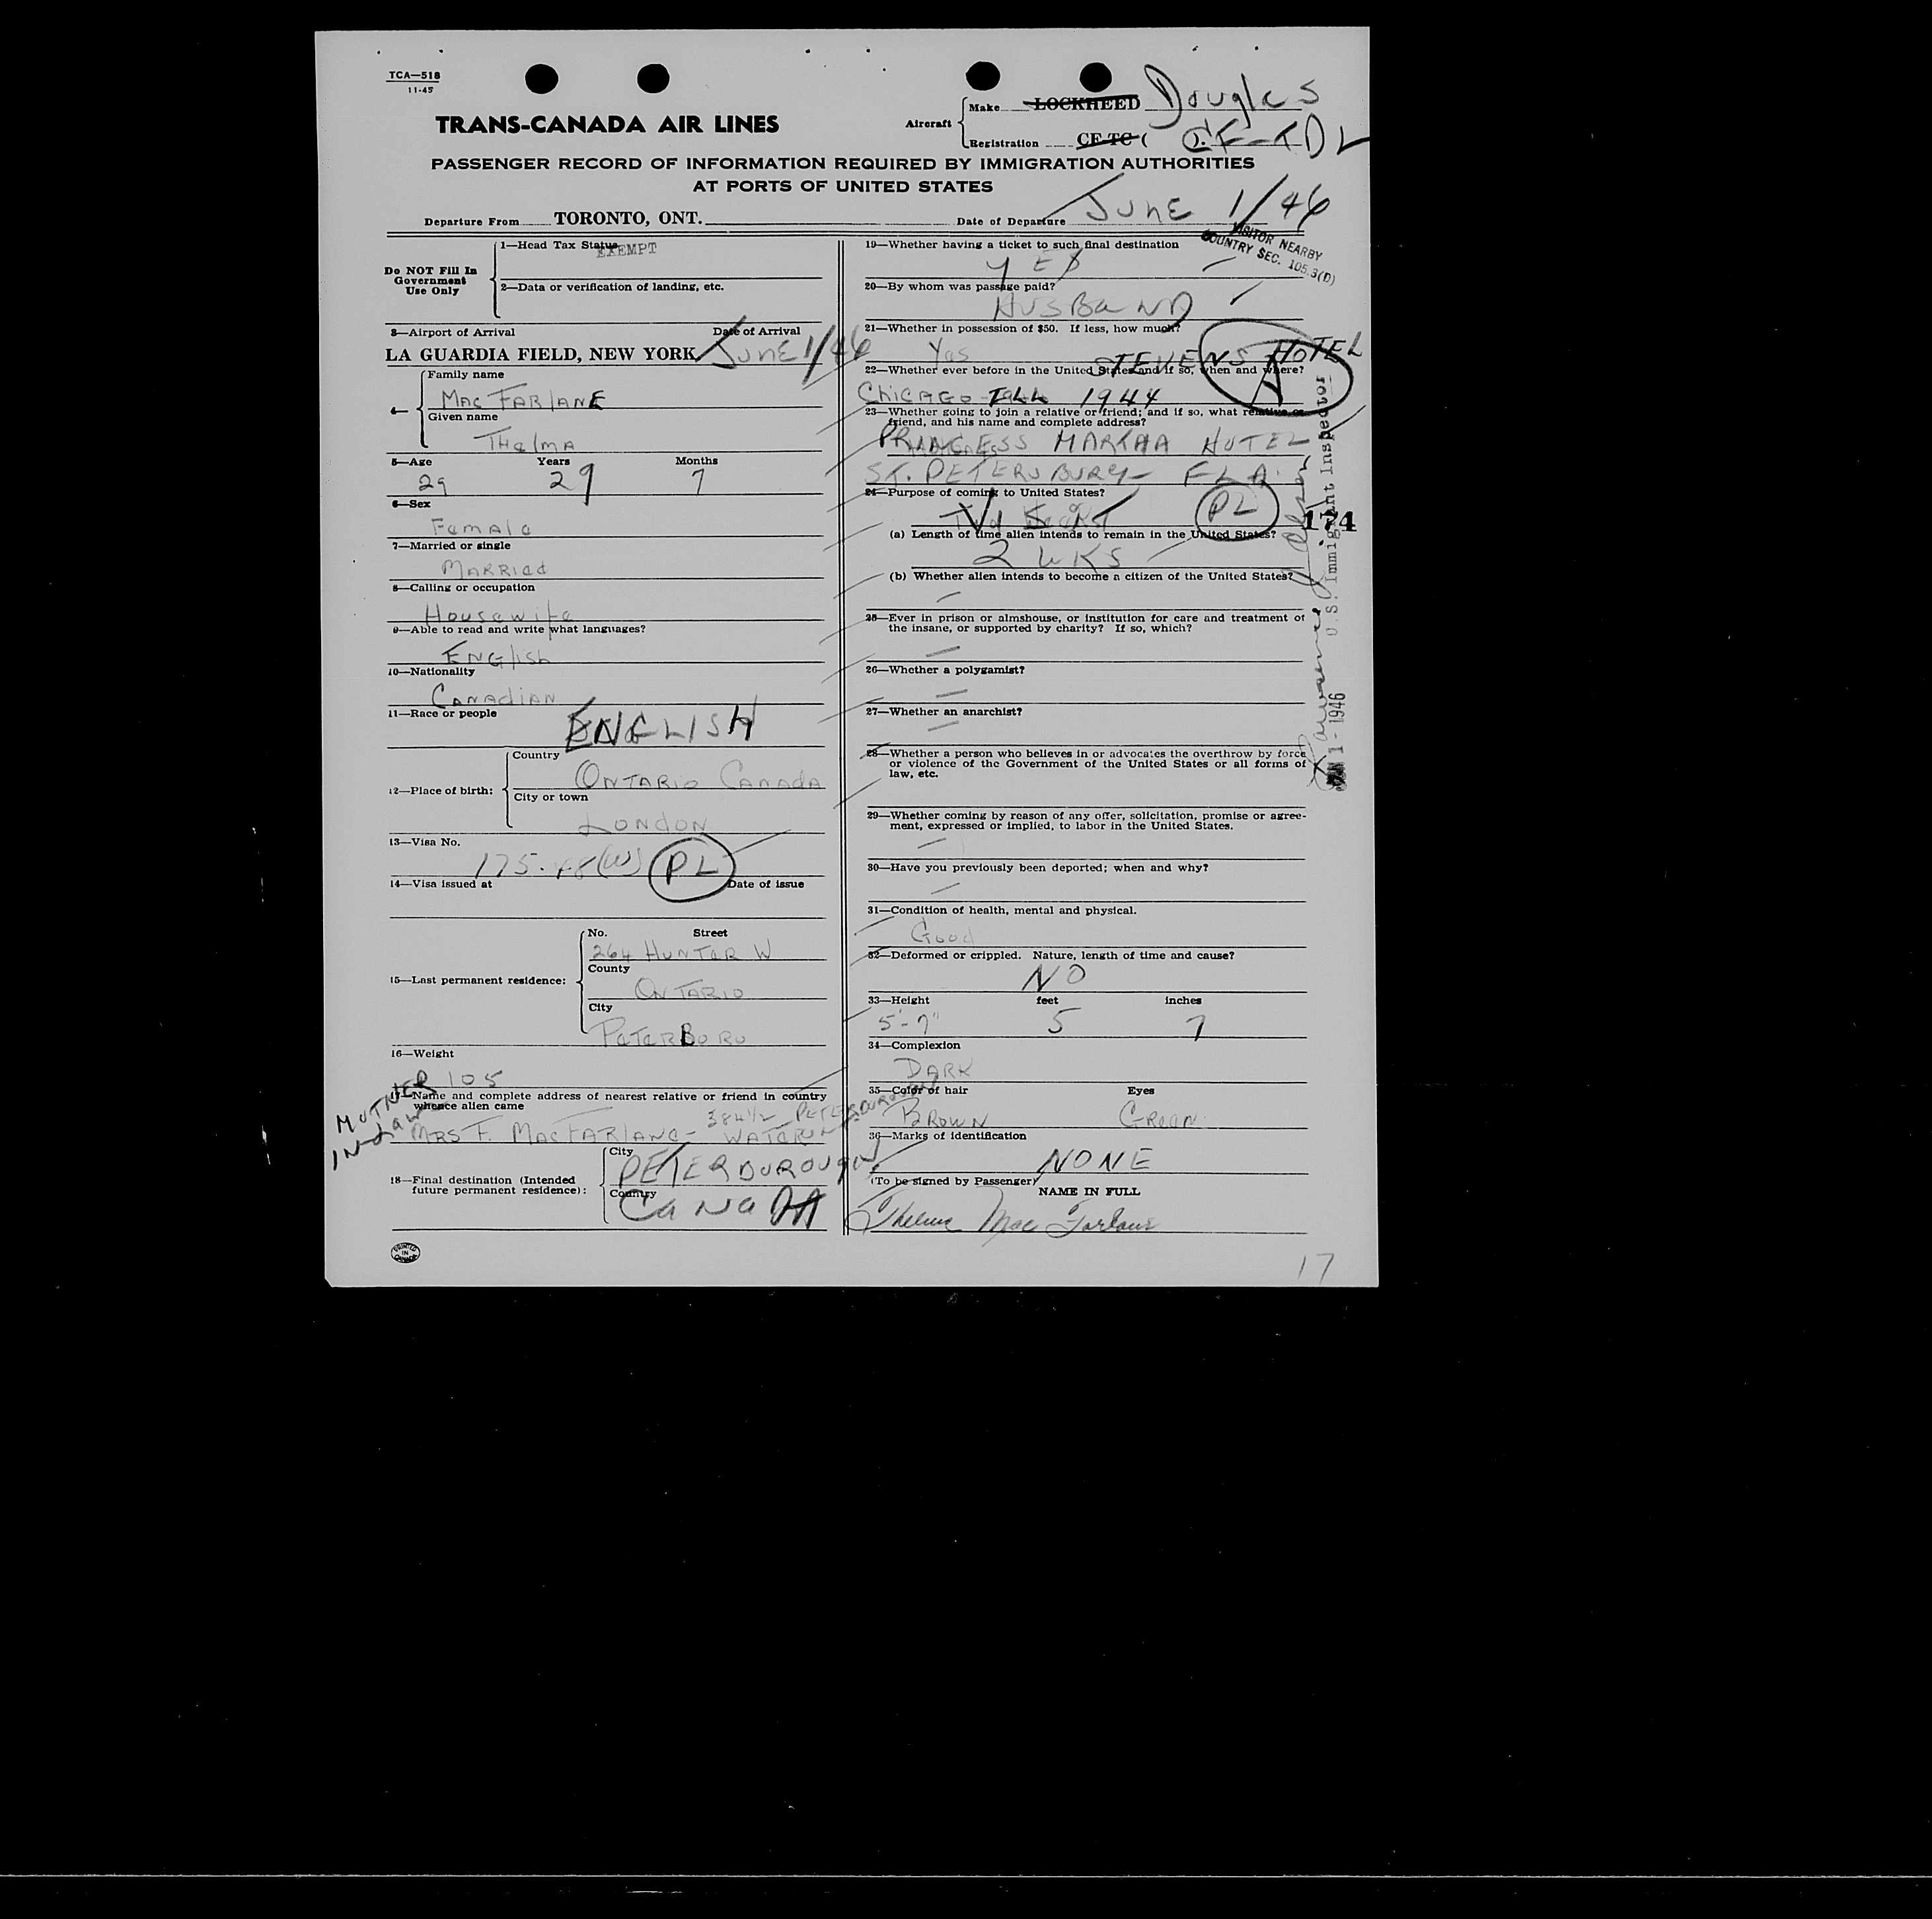 TCA—518
11-45
TRANS-CANADA AIR LINES
Aircraft
Make LOCKHEED Douglas
Registration CF-TC ( ). CF-TDL
PASSENGER RECORD OF INFORMATION REQUIRED BY IMMIGRATION AUTHORITIES
AT PORTS OF UNITED STATES
Departure From TORONTO, ONT.
Date of Departure JUNE 1/46
VISITOR NEARBY
COUNTRY SEC. 105.3(D)
Do NOT Fill In
Government
Use Only
1—Head Tax Status
EXEMPT
2—Data or verification of landing, etc.
3—Airport of Arrival Date of Arrival
LA GUARDIA FIELD, NEW YORK JUNE 1/46
4—
Family name
MacFarlane
Given name
Thelma
5—Age Years Months
29 29 7
6—Sex
Female
7—Married or single
Married
8—Calling or occupation
Housewife
9—Able to read and write what languages?
English
10—Nationality
Canadian
11—Race or people
ENGLISH
12—Place of birth:
Country
Ontario Canada
City or town
London
13—Visa No.
PL
14—Visa issued at Date of issue
15—Last permanent residence:
No. Street
264 Hunter W
County
Ontario
City
PeterBoro
16—Weight
105
17—Name and complete address of nearest relative or friend in country
whence alien came
MOTHER
IN Law
Mrs F. MacFarlane - 384 1/2 PETERBOROUGH
18—Final destination (Intended
future permanent residence):
City
PETERBOROUGH
Country
CaNaDA
PRINTED
IN
CANADA
19—Whether having a ticket to such final destination
YES
20—By whom was passage paid?
HUSBaND
21—Whether in possession of $50. If less, how much?
Yes
STEVENS HOTEL
22—Whether ever before in the United States and if so, when and where?
Chicago ILL 1944
23—Whether going to join a relative or friend; and if so, what relative or
friend, and his name and complete address?
PRINCESS MARTHA HOTEL
ST. PETERSBURG - FLA.
24—Purpose of coming to United States?
VISIT
PL
174
(a) Length of time alien intends to remain in the United States?
2 WKS
(b) Whether alien intends to become a citizen of the United States?
25—Ever in prison or almshouse, or institution for care and treatment of
the insane, or supported by charity? If so, which?
26—Whether a polygamist?
27—Whether an anarchist?
28—Whether a person who believes in or advocates the overthrow by force
or violence of the Government of the United States or all forms of
law, etc.
29—Whether coming by reason of any offer, solicitation, promise or agree-
ment, expressed or implied, to labor in the United States.
30—Have you previously been deported; when and why?
31—Condition of health, mental and physical.
Good
32—Deformed or crippled. Nature, length of time and cause?
NO
33—Height feet inches
5'-7" 5 7
34—Complexion
Dark
35—Color of hair Eyes
Brown Green
36—Marks of identification
NONE
(To be signed by Passenger)
NAME IN FULL
Thelma MacFarlane
U.S. Immigrant Inspector
JUN 1 - 1946
17